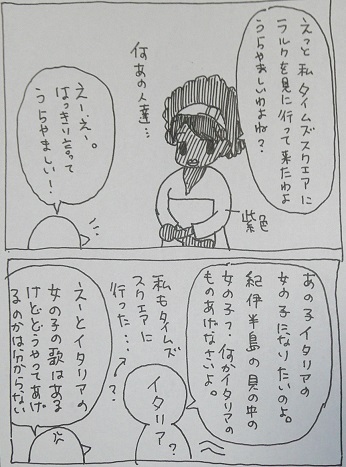 えっと私タイムズスクエアに
ラルクを見に行って来たわよ
うらやましいわよね？
何あの人達…
えーえー。
はっきり言って
うらやましい！
紫色
あの子イタリアの
女の子になりたいのよ。
紀伊半島の貝の中の
女の子？何かイタリアの
ものあげなさいよ。
私もタイムズ
スクエアに
行った…？
イタリア？
えーとイタリアの
女の子の歌はある
けどどうやってあげ
るのかは分からない